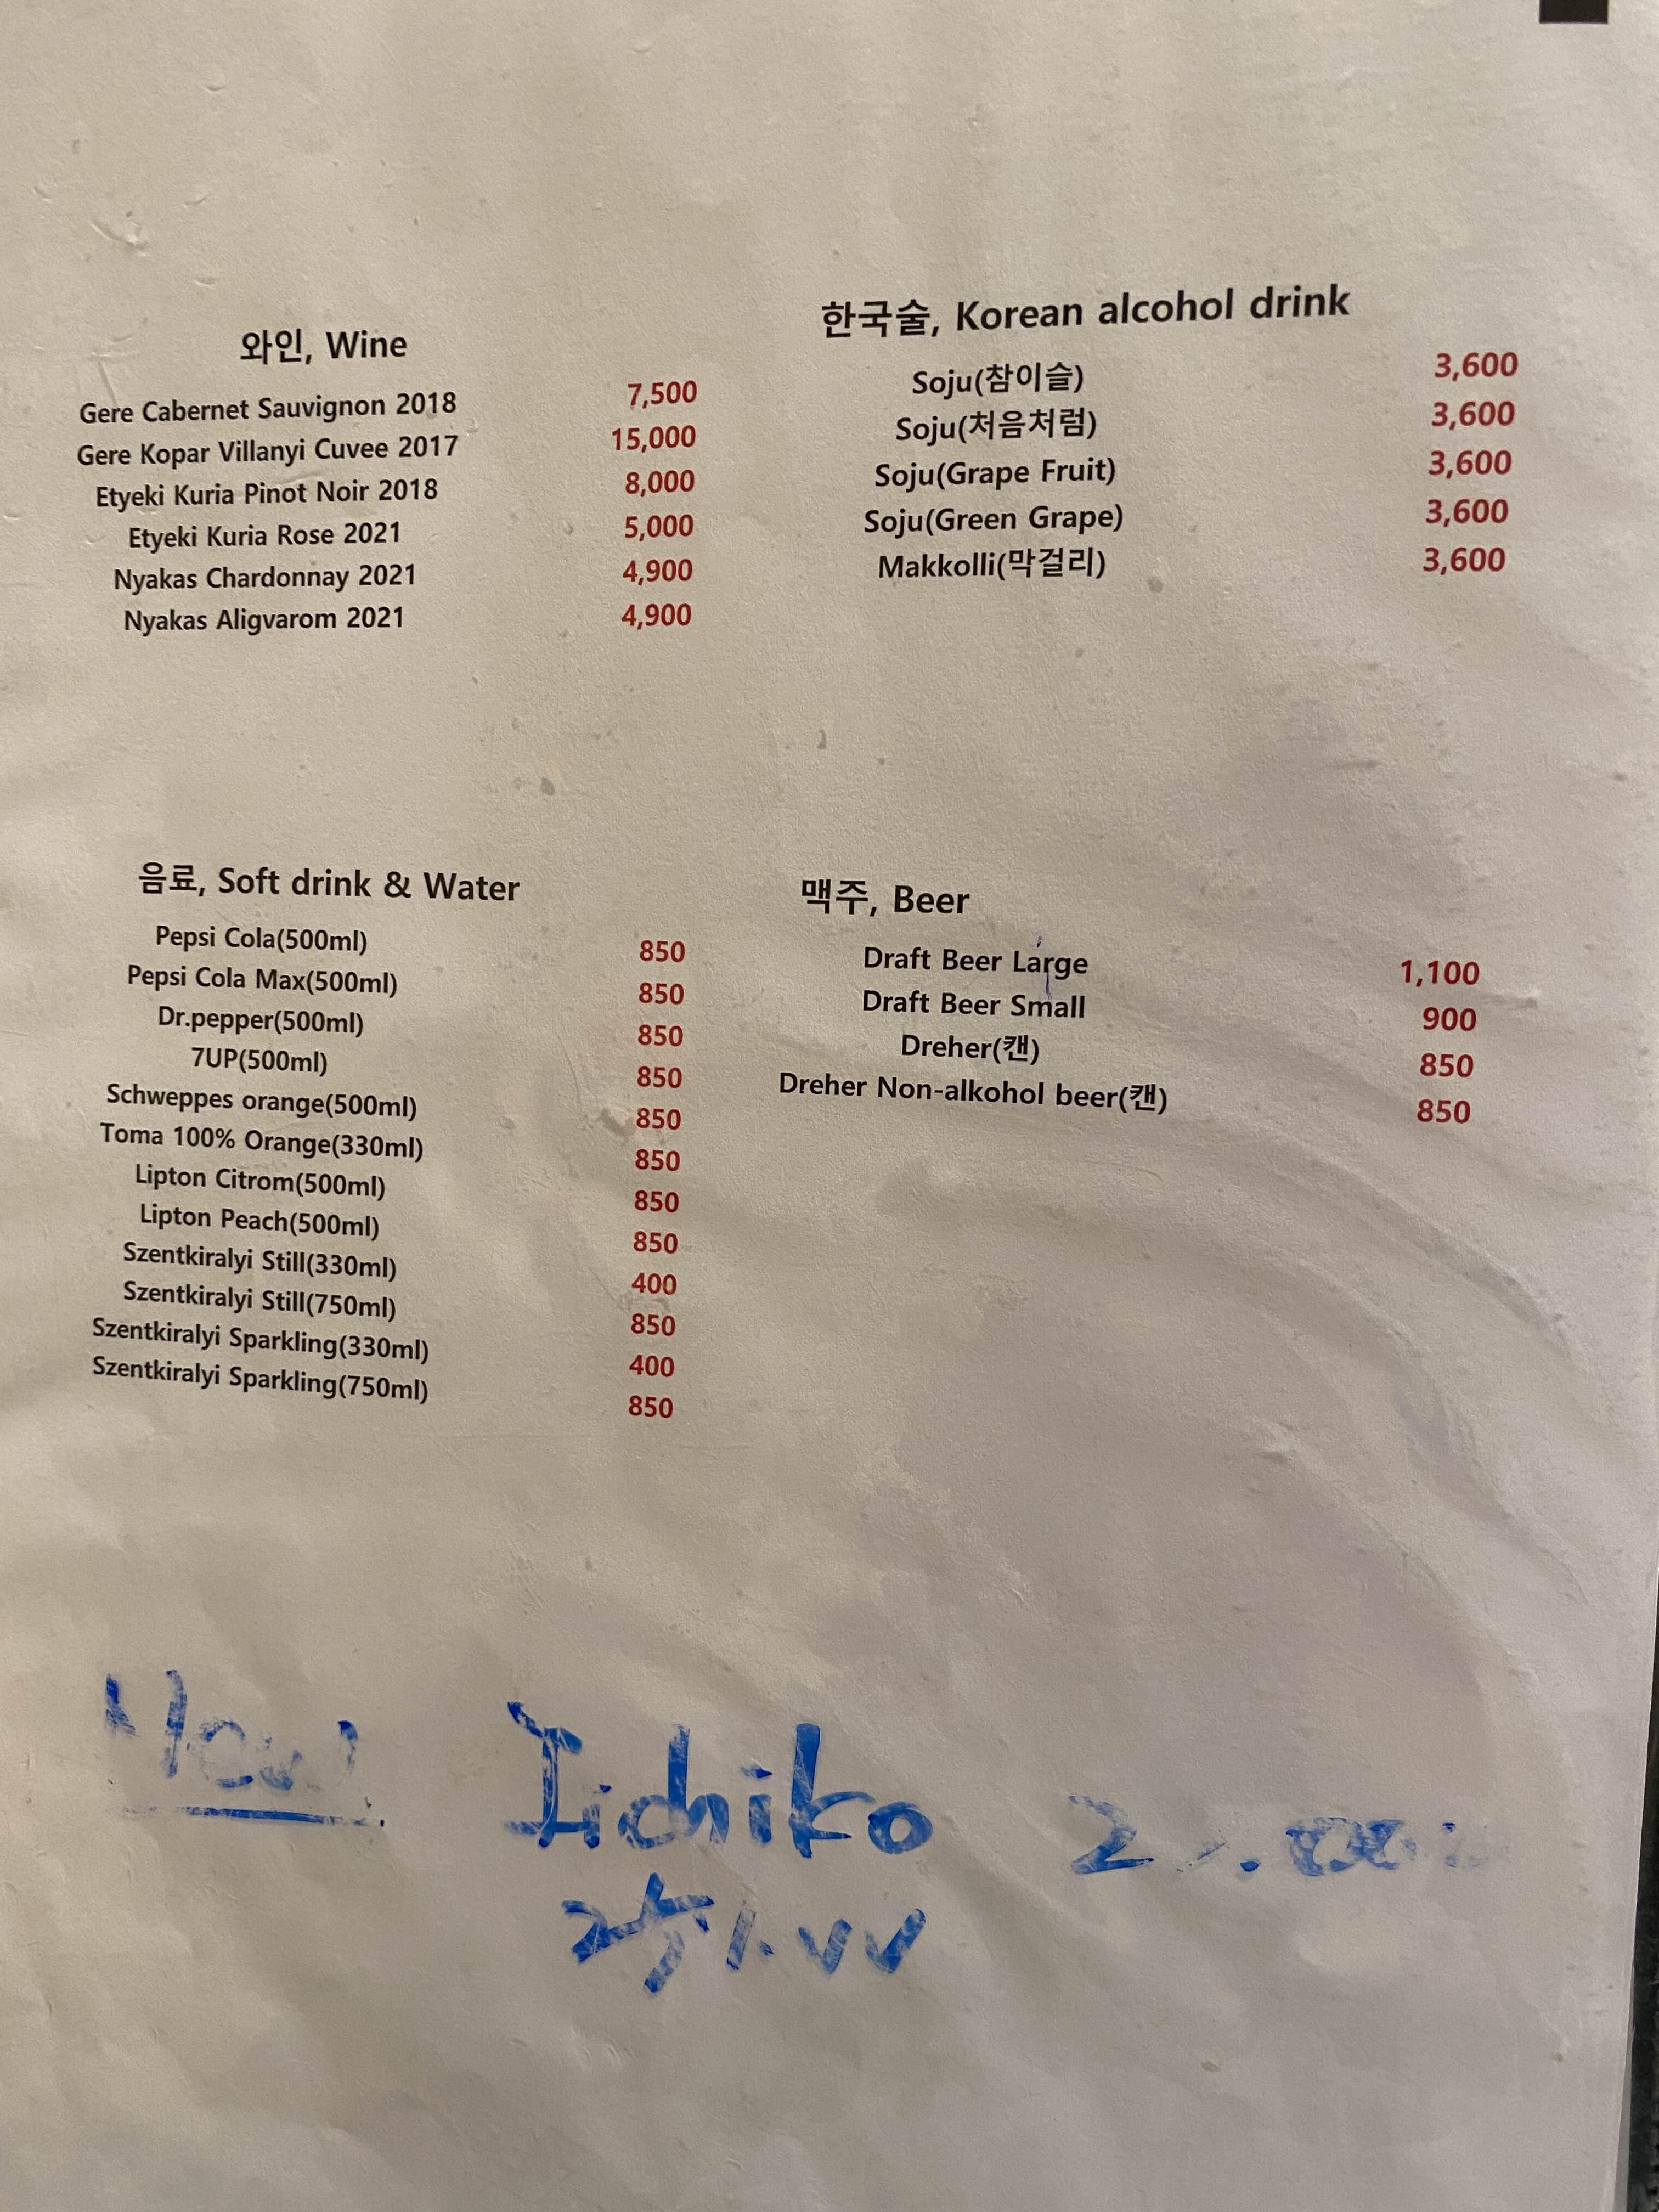 와인, Wine
Gere Cabernet Sauvignon 2018 7,500
Gere Kopar Villanyi Cuvee 2017 15,000
Etyeki Kuria Pinot Noir 2018 8,000
Etyeki Kuria Rose 2021 5,000
Nyakas Chardonnay 2021 4,900
Nyakas Aligvarom 2021 4,900
한국술, Korean alcohol drink
Soju(참이슬) 3,600
Soju(처음처럼) 3,600
Soju(Grape Fruit) 3,600
Soju(Green Grape) 3,600
Makkolli(막걸리) 3,600
음료, Soft drink & Water
Pepsi Cola(500ml) 850
Pepsi Cola Max(500ml) 850
Dr.pepper(500ml) 850
7UP(500ml) 850
Schweppes orange(500ml) 850
Toma 100% Orange(330ml) 850
Lipton Citrom(500ml) 850
Lipton Peach(500ml) 850
Szentkiralyi Still(330ml) 400
Szentkiralyi Still(750ml) 850
Szentkiralyi Sparkling(330ml) 400
Szentkiralyi Sparkling(750ml) 850
맥주, Beer
Draft Beer Large 1,100
Draft Beer Small 900
Dreher(캔) 850
Dreher Non-alkohol beer(캔) 850
New Iichiko